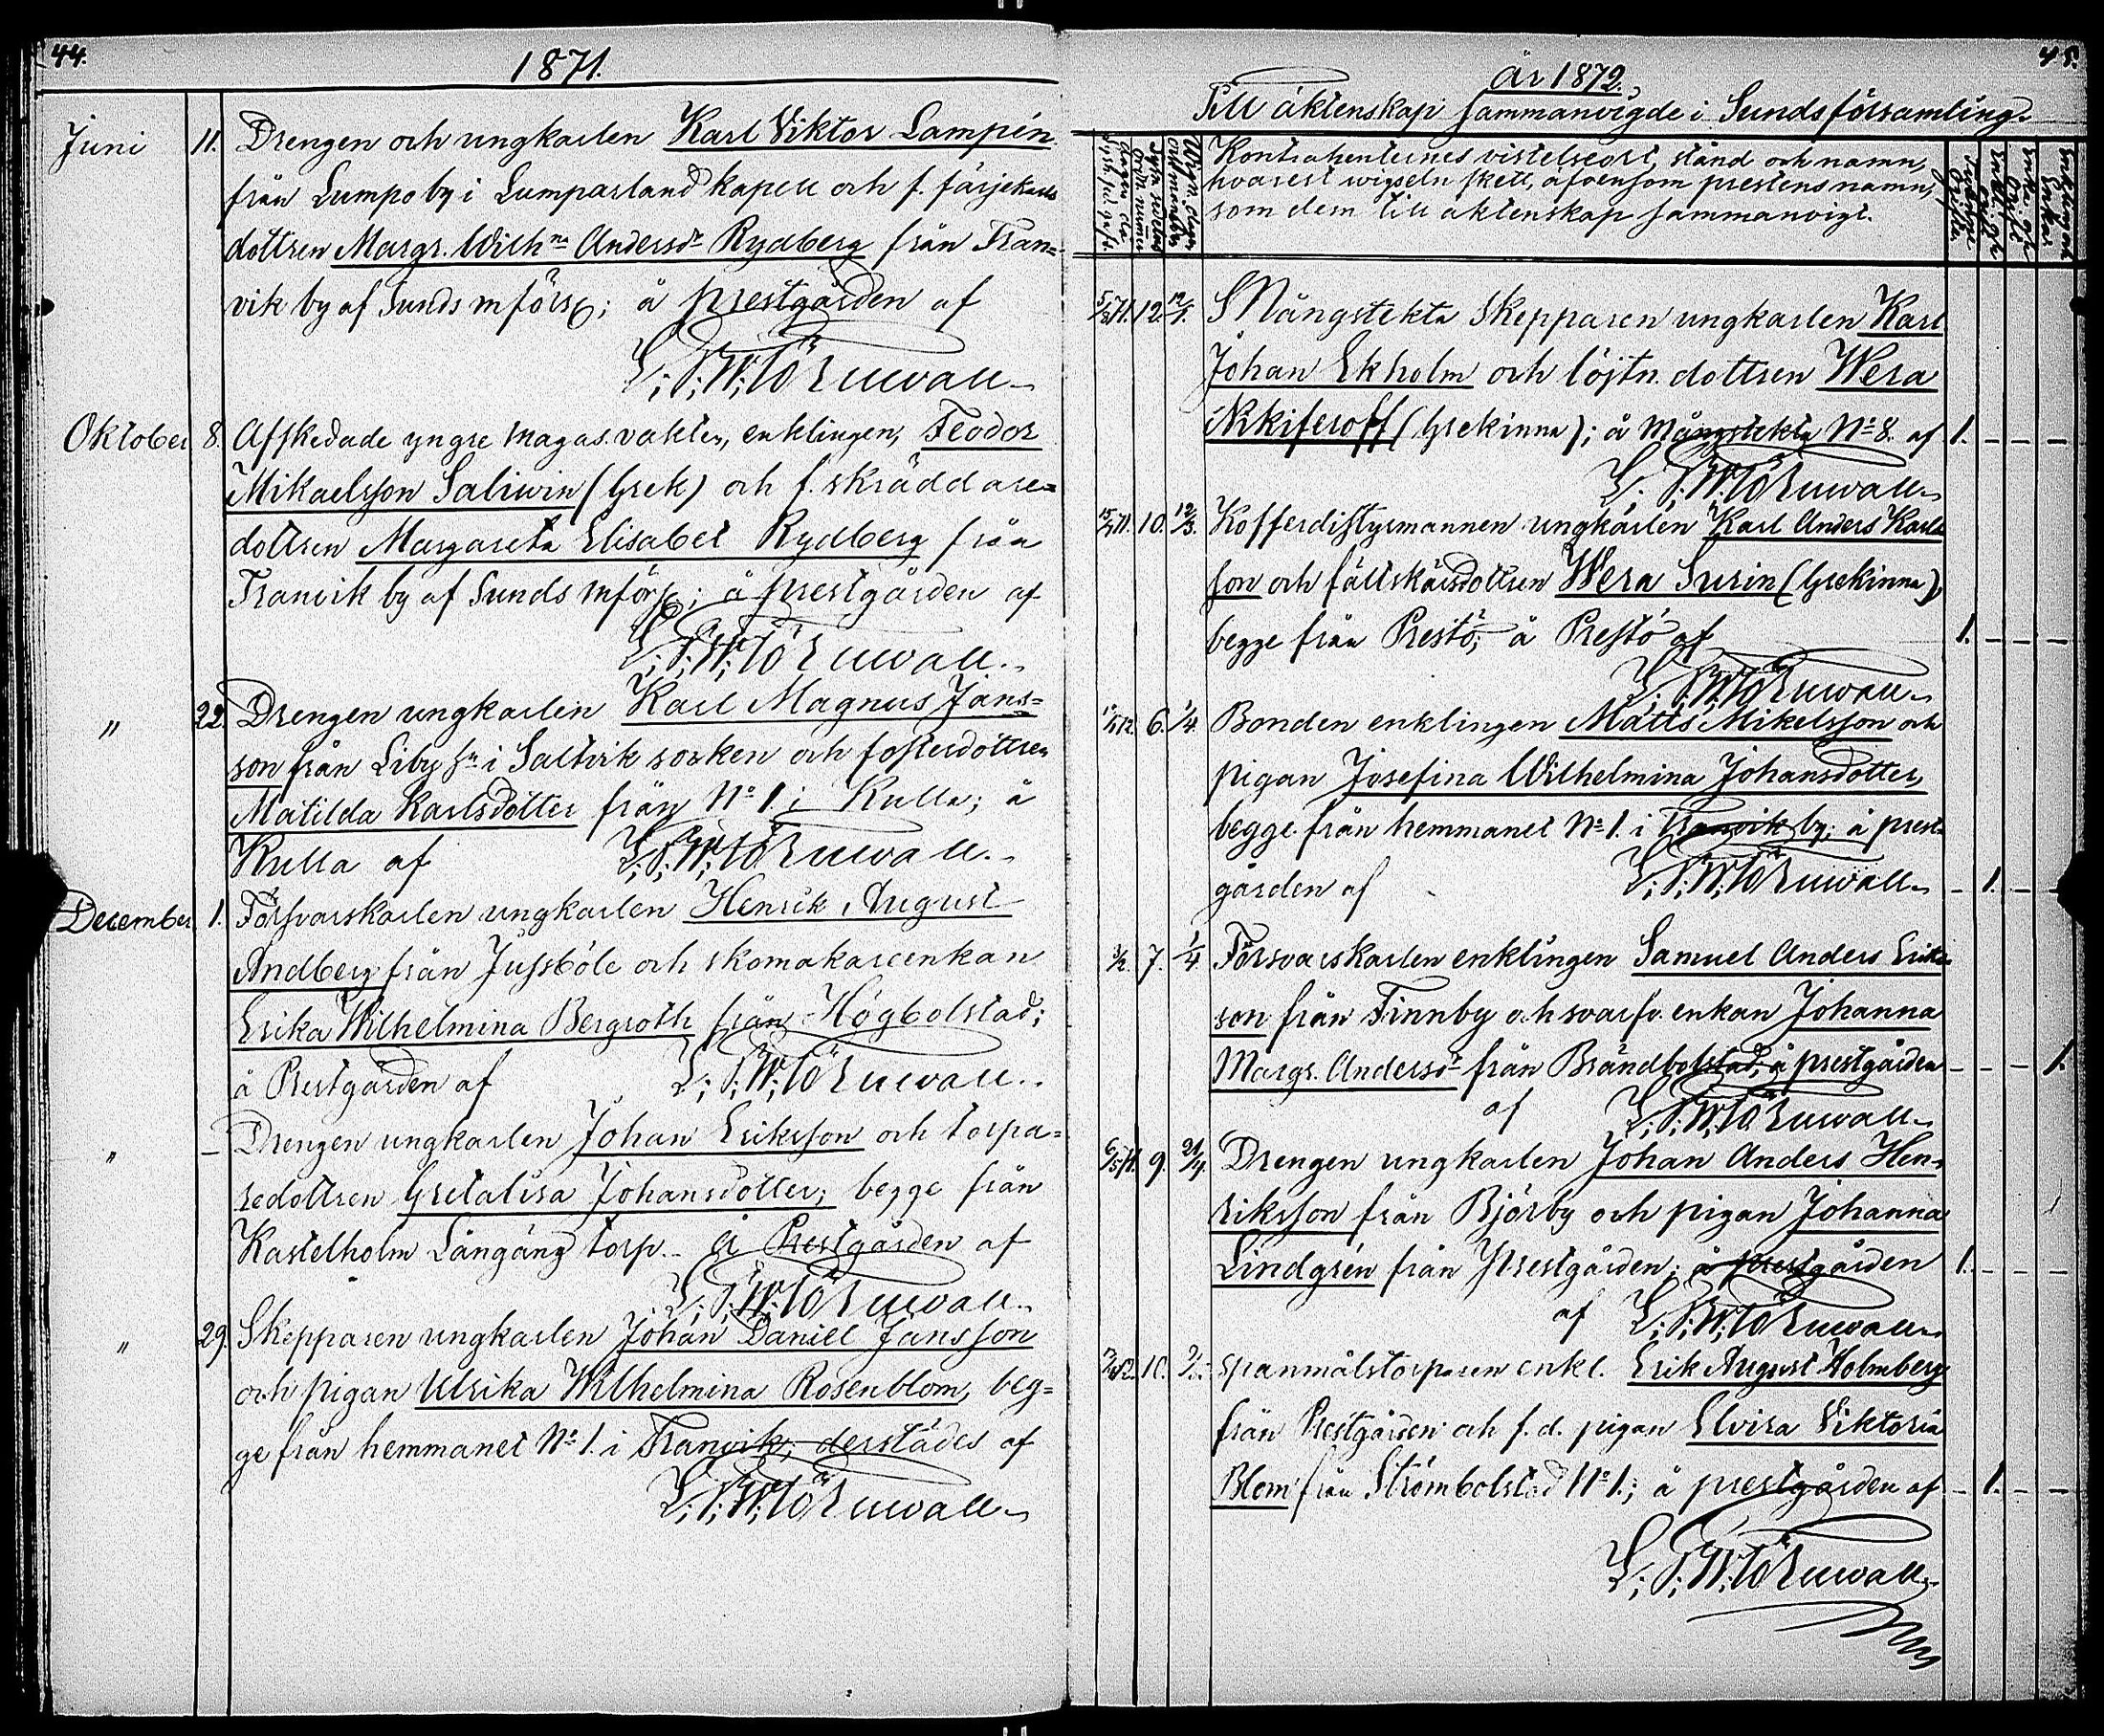 44.
1871.
Juni 11. Drengen och ungkarlen Karl Viktor Lampén
från Lumpo by i Lumparland kapell och f. färjekarls
dottren Margr. Wilhna Andersdr Rydberg från Tran=
vik by af Sunds mförs; å prestgården af
L. P. W. Törnwall
Oktober 8. Afskedade yngre magas.vakten, enklingen, Feodor
Mikaelsson Saliwin (Grek) och f. skräddare=
dottren Margareta Elisabet Rydberg från
Tranvik by af Sunds mförs; å prestgården af
L. P. W. Törnwall.
" 22. Drengen ungkarlen Karl Magnus Jans=
son från Liby i Saltvik socken och fosterdottren
Matilda Karlsdotter från No 1. i Kulla; å
Kulla af L. P. W. Törnwall.
December 1. Försvarskarlen ungkarlen Henrik August
Andberg från Jussböle och skomakareenkan
Erika Wilhelmina Bergroth från Högbolstad;
å Prestgården af L. P. W. Törnwall.
" – Drengen ungkarlen Johan Eriksson och torpa=
redottren Gretalisa Johansdotter; begge från
Kastelholm Långäng torp. å Prestgården af
L. P. W. Törnwall.
" 29. Skepparen ungkarlen Johan Daniel Jansson
och pigan Ulrika Wilhelmina Rosenblom, beg=
ge från hemmanet No 1. i Tranvik; derstädes af
L. P. W. Törnwall
45.
år 1872.
Till äktenskap sammanvigde i Sunds församling.
Kontrahenternes vistelseort, stånd och namn,
hvarest vigseln skett, äfvensom prestens namn,
som dem till äktenskap sammanvigt.
12. Mångstekta Skepparen ungkarlen Karl
Johan Ekholm och löjtn. dottren Wera
Nikiferoff (Grekinna); å Mångstekta No 8. af 1. – – –
L. P. W. Törnwall
10. 12/3. Kofferdistyrmannen ungkarlen Karl Anders Karls
son och fältskärsdottren Wera Surin (Grekinna),
begge från Prestö; å Prestö af 1. – – –
L. P. W. Törnwall
6. 1/4. Bonden enklingen Matts Mikelsson och
pigan Josefina Wilhelmina Johansdotter,
begge från hemmanet No 1. i Tranvik by; å prest=
gården af L. P. W. Törnwall – 1. – –
7. 1/4. Försvarskarlen enklingen Samuel Anders Eriks
son från Finnby och svarfv. enkan Johanna
Margr. Andersdr från Brändbolstad; å prestgården – – – 1.
af L. P. W. Törnwall
9. 21/4. Drengen ungkarlen Johan Anders Hen=
riksson från Björby och pigan Johanna
Lindgrén från Prestgården; å prestgården 1. – – –
af L. P. W. Törnwall
10. Spanmålstorparen enkl. Erik August Holmberg
från Prestgården och f. d. pigan Elvira Viktoria
Blom från Strömbolstad No 1.; å prestgården af – 1. – –
L. P. W. Törnwall